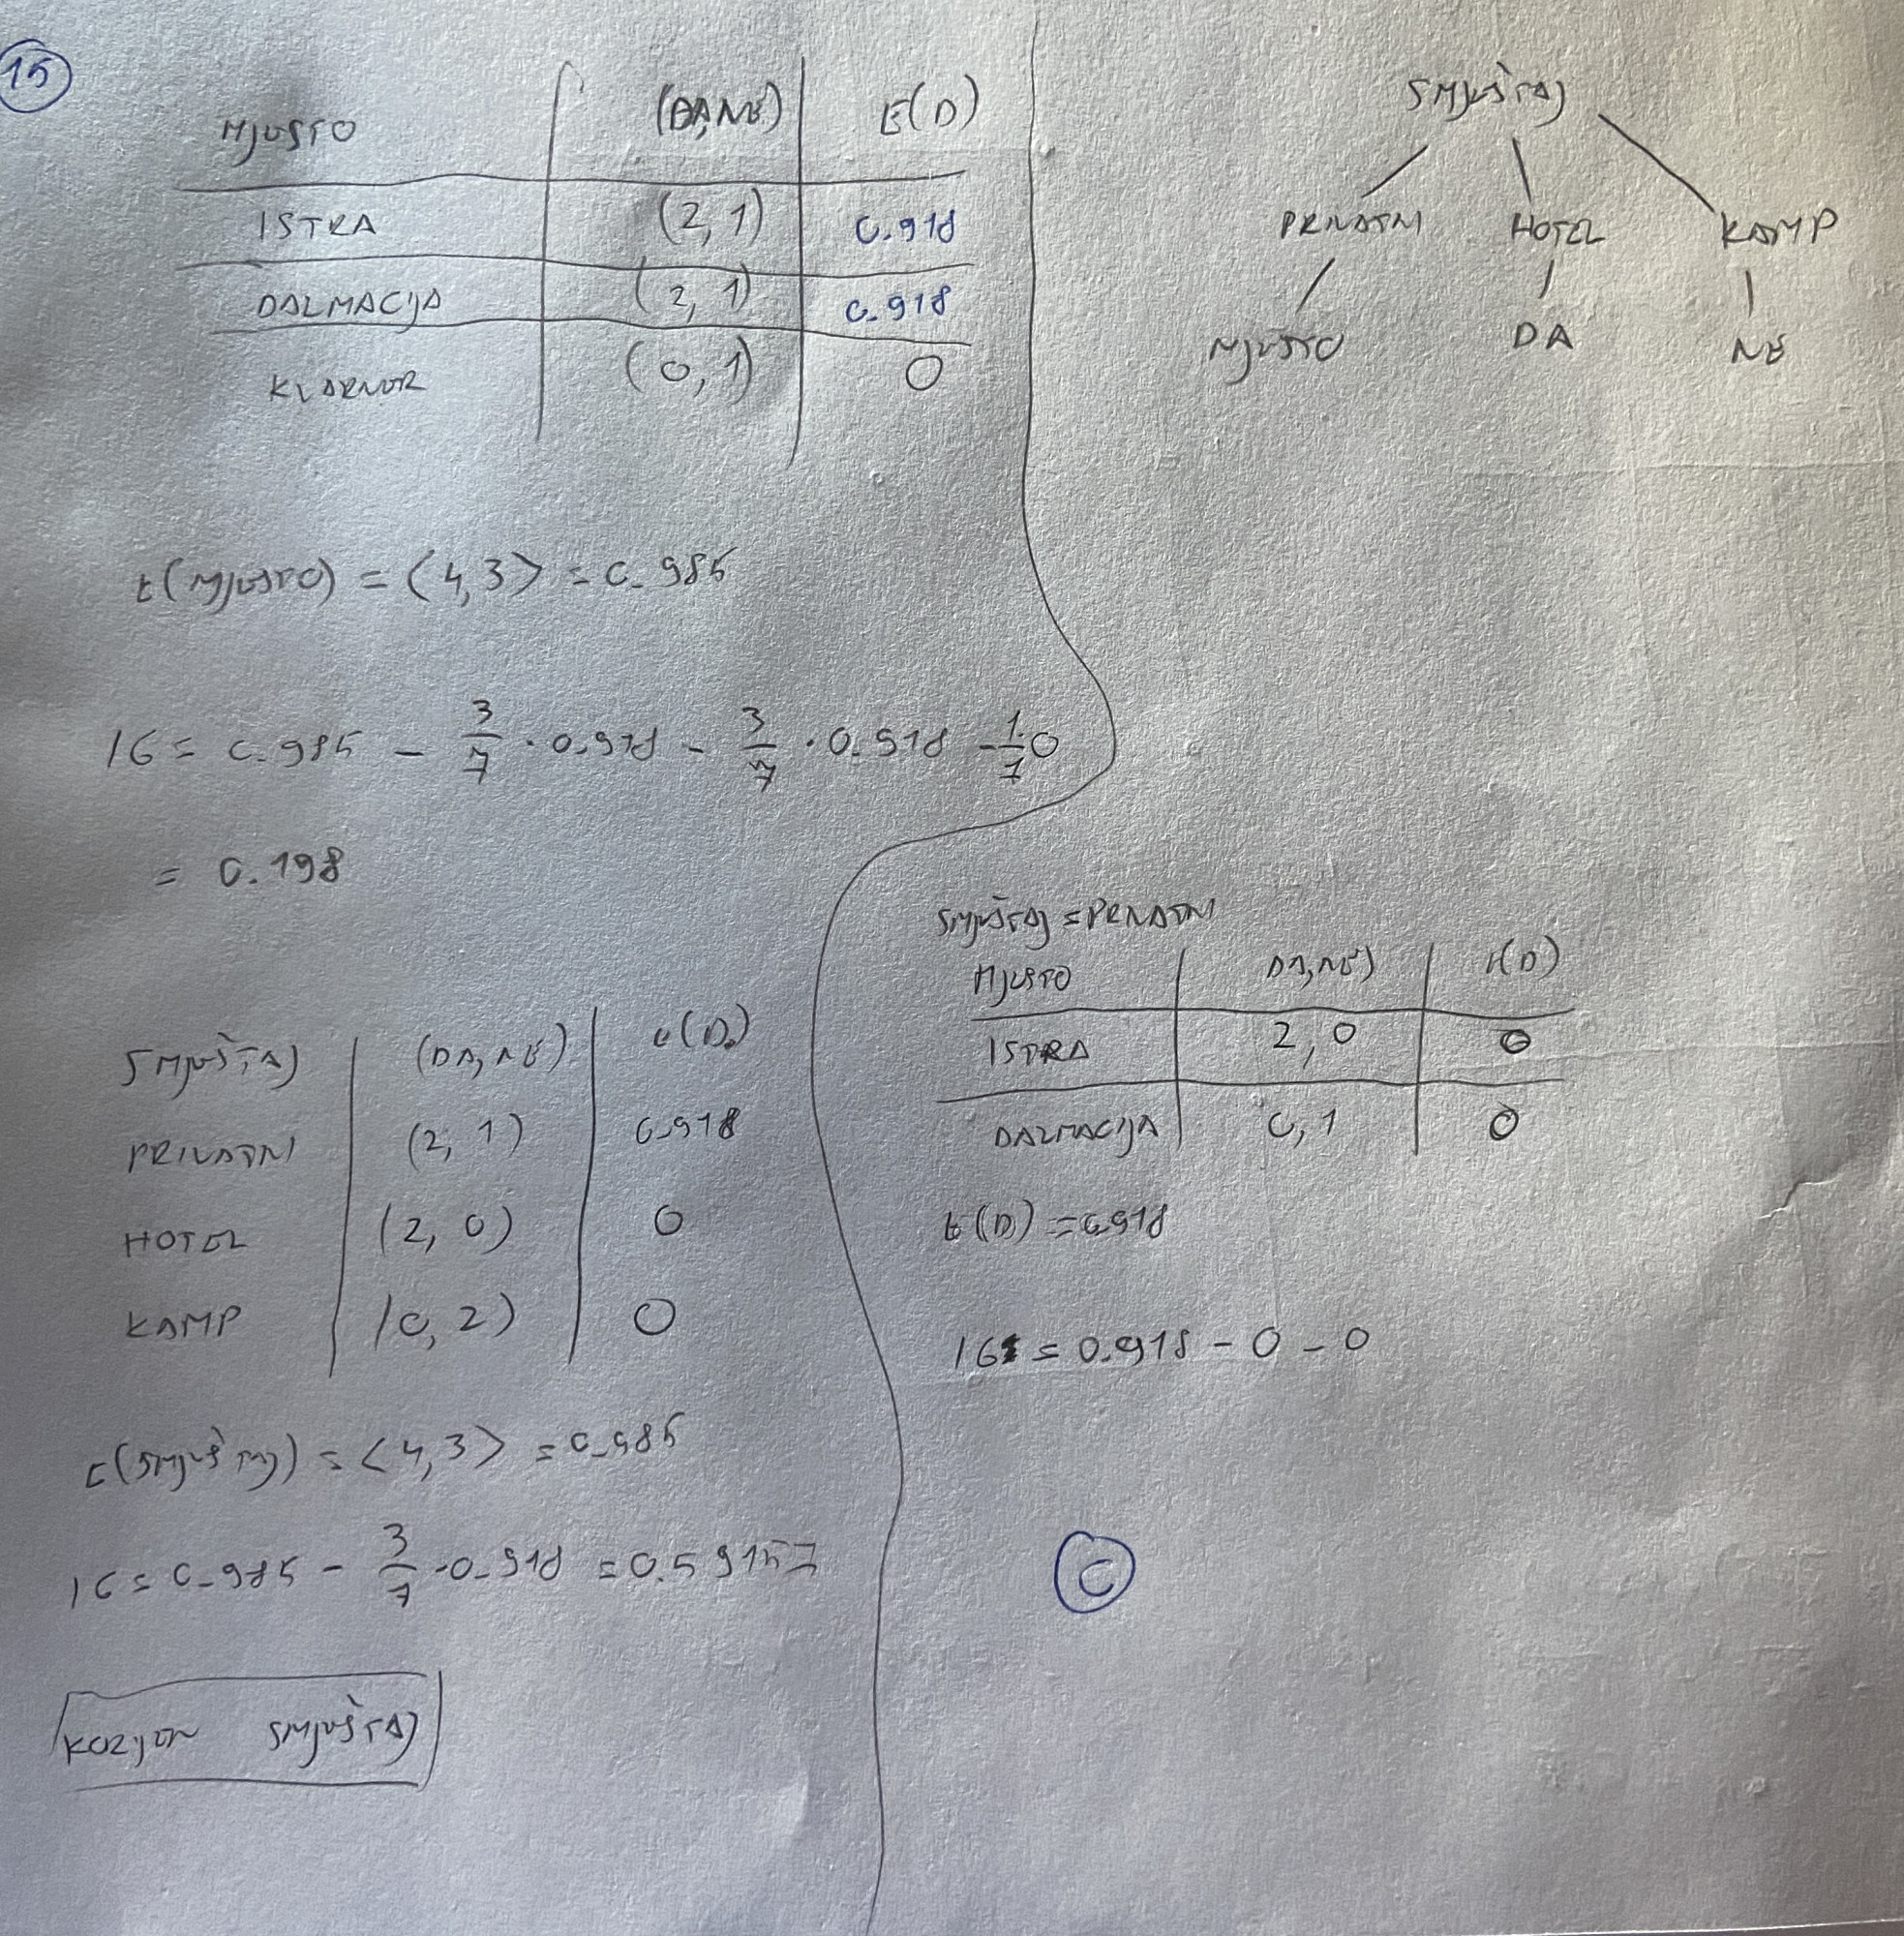 15
MJESTO (DA,NE) E(D)
ISTRA (2,1) 0.918
DALMACIJA (2,1) 0.918
KVARNER (0,1) 0
E(MJESTO) = <4,3> = 0.985
IG = 0.985 - 3/7 · 0.918 - 3/7 · 0.918 - 1/7 · 0
= 0.198
SMJEŠTAJ (DA,NE) E(D)
PRIVATNI (2,1) 0.918
HOTEL (2,0) 0
KAMP (0,2) 0
E(SMJEŠTAJ) = <4,3> = 0.985
IG = 0.985 - 3/7 · 0.918 = 0.59157
KORIJEN SMJEŠTAJ
SMJEŠTAJ
PRIVATNI HOTEL KAMP
MJESTO DA NE
SMJEŠTAJ = PRIVATNI
MJESTO DA,NE) E(D)
ISTRA 2,0 0
DALMACIJA 0,1 0
E(D) = 0.918
IG = 0.918 - 0 - 0
C